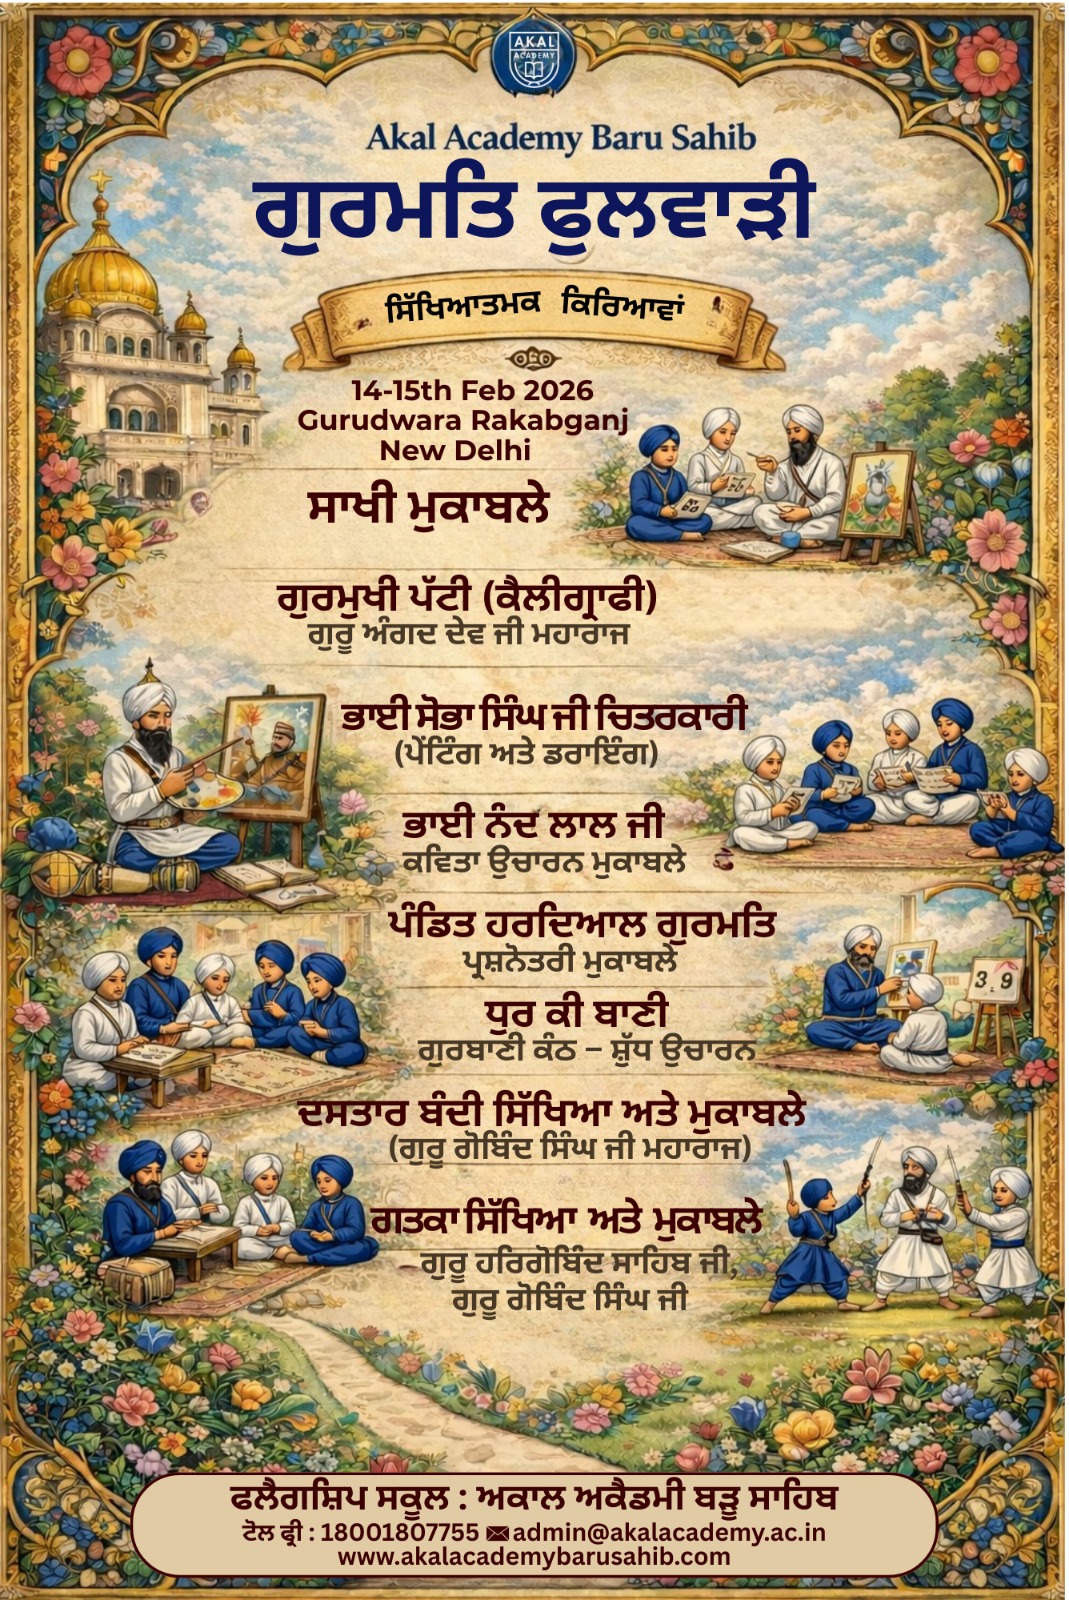 AKAL
ACADEMY
Akal Academy Baru Sahib
ਗੁਰਮਤਿ ਫੁਲਵਾੜੀ
ਸਿੱਖਿਆਤਮਕ ਕਿਰਿਆਵਾਂ
14-15th Feb 2026
Gurudwara Rakabganj
New Delhi
ਸਾਖੀ ਮੁਕਾਬਲੇ
ਗੁਰਮੁਖੀ ਪੱਟੀ (ਕੈਲੀਗ੍ਰਾਫੀ)
ਗੁਰੂ ਅੰਗਦ ਦੇਵ ਜੀ ਮਹਾਰਾਜ
ਭਾਈ ਸੋਭਾ ਸਿੰਘ ਜੀ ਚਿਤਰਕਾਰੀ
(ਪੇਂਟਿੰਗ ਅਤੇ ਡਰਾਇੰਗ)
ਭਾਈ ਨੰਦ ਲਾਲ ਜੀ
ਕਵਿਤਾ ਉਚਾਰਨ ਮੁਕਾਬਲੇ
ਪੰਡਿਤ ਹਰਦਿਆਲ ਗੁਰਮਤਿ
ਪ੍ਰਸ਼ਨੋਤਰੀ ਮੁਕਾਬਲੇ
3 9
ਧੁਰ ਕੀ ਬਾਣੀ
ਗੁਰਬਾਣੀ ਕੰਠ – ਸ਼ੁੱਧ ਉਚਾਰਨ
ਦਸਤਾਰ ਬੰਦੀ ਸਿੱਖਿਆ ਅਤੇ ਮੁਕਾਬਲੇ
(ਗੁਰੂ ਗੋਬਿੰਦ ਸਿੰਘ ਜੀ ਮਹਾਰਾਜ)
ਗਤਕਾ ਸਿੱਖਿਆ ਅਤੇ ਮੁਕਾਬਲੇ
ਗੁਰੂ ਹਰਿਗੋਬਿੰਦ ਸਾਹਿਬ ਜੀ,
ਗੁਰੂ ਗੋਬਿੰਦ ਸਿੰਘ ਜੀ
ਫਲੈਗਸ਼ਿਪ ਸਕੂਲ : ਅਕਾਲ ਅਕੈਡਮੀ ਬੜੂ ਸਾਹਿਬ
ਟੋਲ ਫ੍ਰੀ : 18001807755 admin@akalacademy.ac.in
www.akalacademybarusahib.com